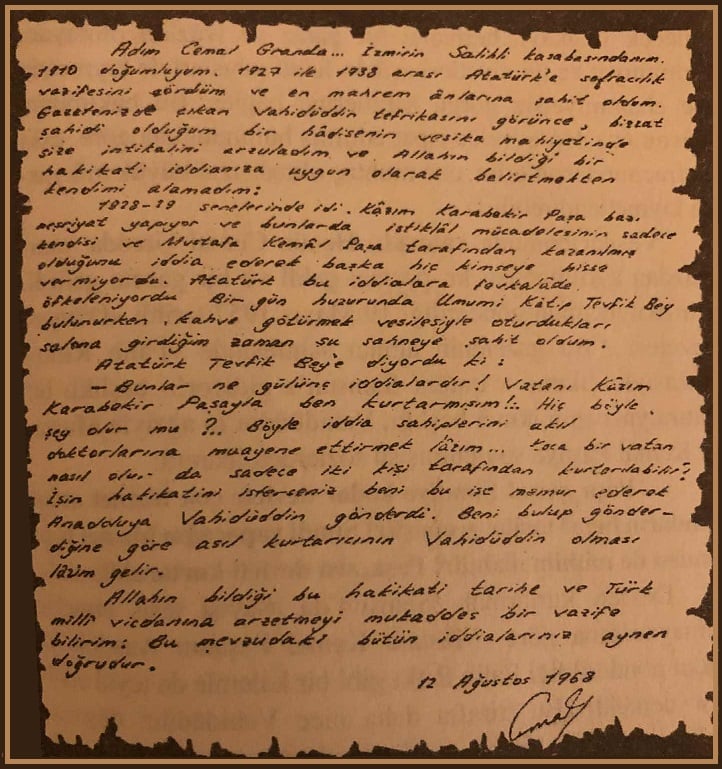 Adım Cemal Granda... İzmirin Salihli kasabasındanım.
1910 doğumluyum. 1927 ile 1938 arası Atatürk'e sofracılık
vazifesini gördüm ve en mahrem ânlarına şahit oldum.
Gazetenizde çıkan Vahidüddin tefrikasını görünce, bizzat
şahidi olduğum bir hâdisenin vesika mahiyetinde
size intikalini arzuladım ve Allahın bildiği bir
hakikati iddianıza uygun olarak belirtmekten
kendimi alamadım:
1928-29 senelerinde idi. Kâzım Karabekir Paşa bazı
neşriyat yapıyor ve bunlarda istiklâl mücadelesinin sadece
kendisi ve Mustafa Kemâl Paşa tarafından kazanılmış
olduğunu iddia ederek başka hiç kimseye hisse
vermiyordu. Atatürk bu iddialara fevkalâde
öfkeleniyordu Bir gün huzurunda Umumi Kâtip Tevfik Bey
bulunurken, kahve götürmek vesilesiyle oturdukları
salona girdiğim zaman şu sahneye şahit oldum.
Atatürk Tevfik Bey'e diyordu ki:
— Bunlar ne gülünç iddialardır! Vatanı Kâzım
Karabekir Paşayla ben kurtarmışım!.. Hiç böyle
şey olur mu?.. Böyle iddia sahiplerini akıl
doktorlarına muayene ettirmek lâzım... Koca bir vatan
nasıl olur da sadece iki kişi tarafından kurtarılabilir?
İşin hakikatini isterseniz beni bu işe memur ederek
Anadoluya Vahidüddin gönderdi. Beni bulup gönder-
diğine göre asıl kurtarıcının Vahidüddin olması
lâzım gelir.
Allahın bildiği bu hakikati tarihe ve Türk
millî vicdanına arzetmeyi mukaddes bir vazife
bilirim: Bu mevzudaki bütün iddialarınız aynen
doğrudur.
12 Ağustos 1968
Cemal